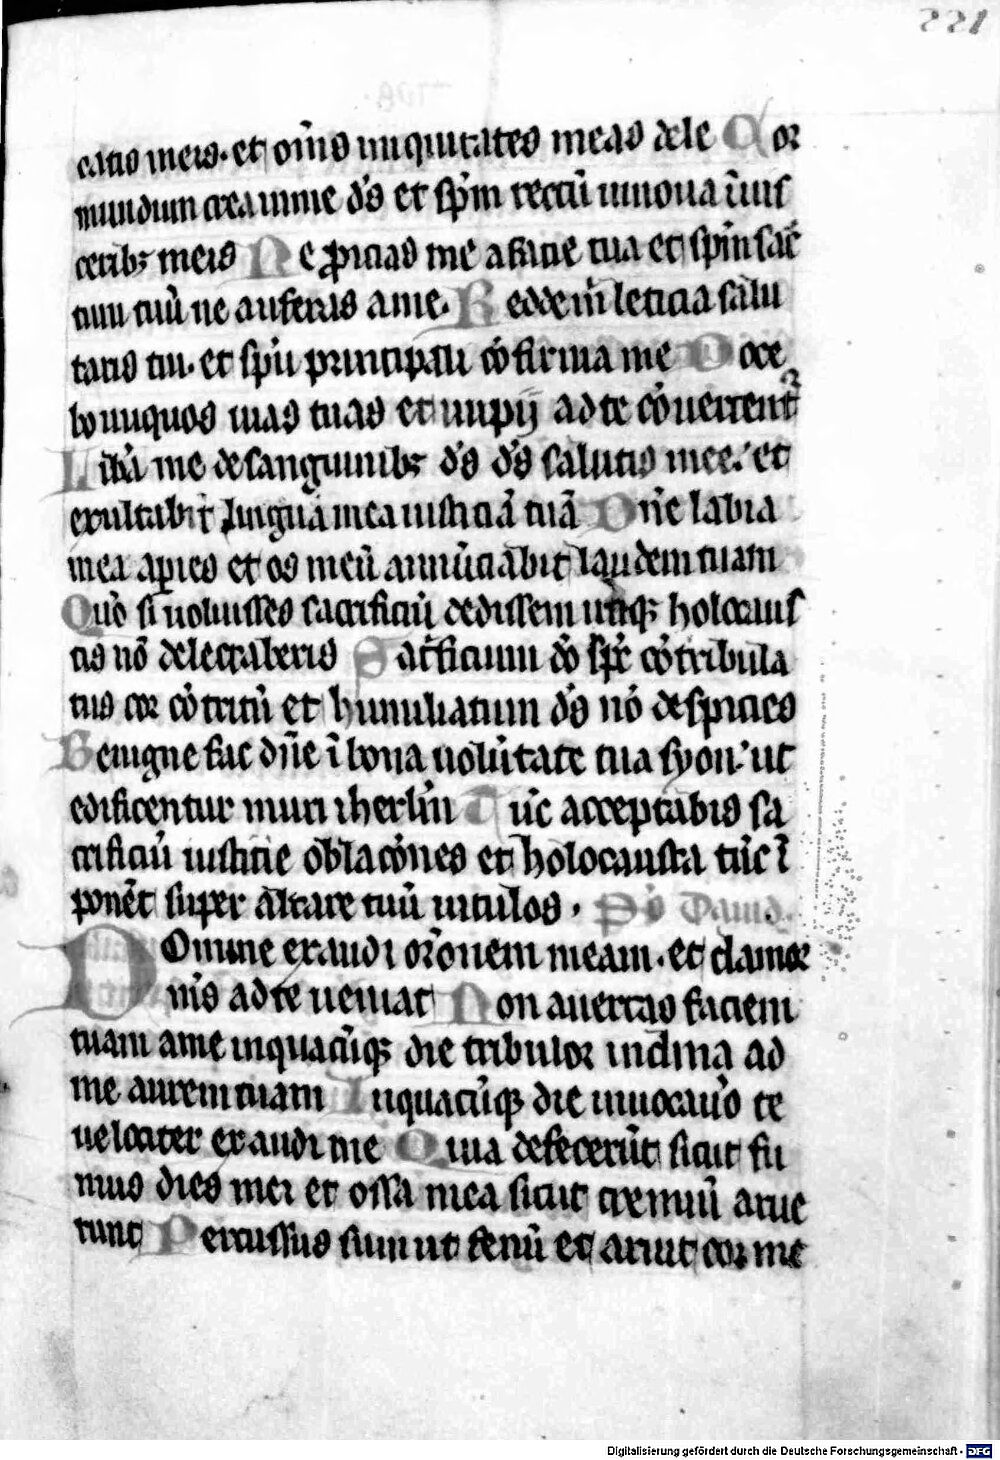 221
catis meis. et om̄s iniquitates meas dele Cor
mundum crea in me d̄s et sp̄m rectū innova ī vis
cerib; meis Ne proicias me a facie tua et sp̄m sāc
tum tuū ne auferas a me. Redde m̄ leticiā salu
taris tui. et sp̄u principali cōfirma me Doce
bo iniquos vias tuas et impij ad te cōvertent᷑
Lib̄a me de sanguinib; d̄s d̄s salutis mee. et
exultabit lingua mea iusticiā tuā Dn̄e labia
mea aperies et os meū annūciabit laudem tuam
Qūo si voluisses sacrificiū dedissem utiq; holocaus
tis nō delectaberis Sac̄ficium d̄o sp̄c cōtribula
tus cor cōtritū et humiliatum d̄s nō despicies
Benigne fac dn̄e ī bona volūtate tua syon. ut
edificentur muri iherl̄m Tūc acceptabis sa
crificiū iusticie oblacōnes et holocausta tūc ī
ponēt super altare tuū vitulos. Ps̄ David.
Domine exaudi or̄onem meam. et clamor
m̄s ad te veniat Non avertas faciem
tuam a me in quacūq; die tribulor inclina ad
me aurem tuam In quacūq; die invocav̄o te
velociter exaudi me Quia defecerūt sicut fu
mus dies mei et ossa mea sicut cremiū arue
runt Percussus sum ut fenū et aruit cor me
Digitalisierung gefördert durch die Deutsche Forschungsgemeinschaft - DFG